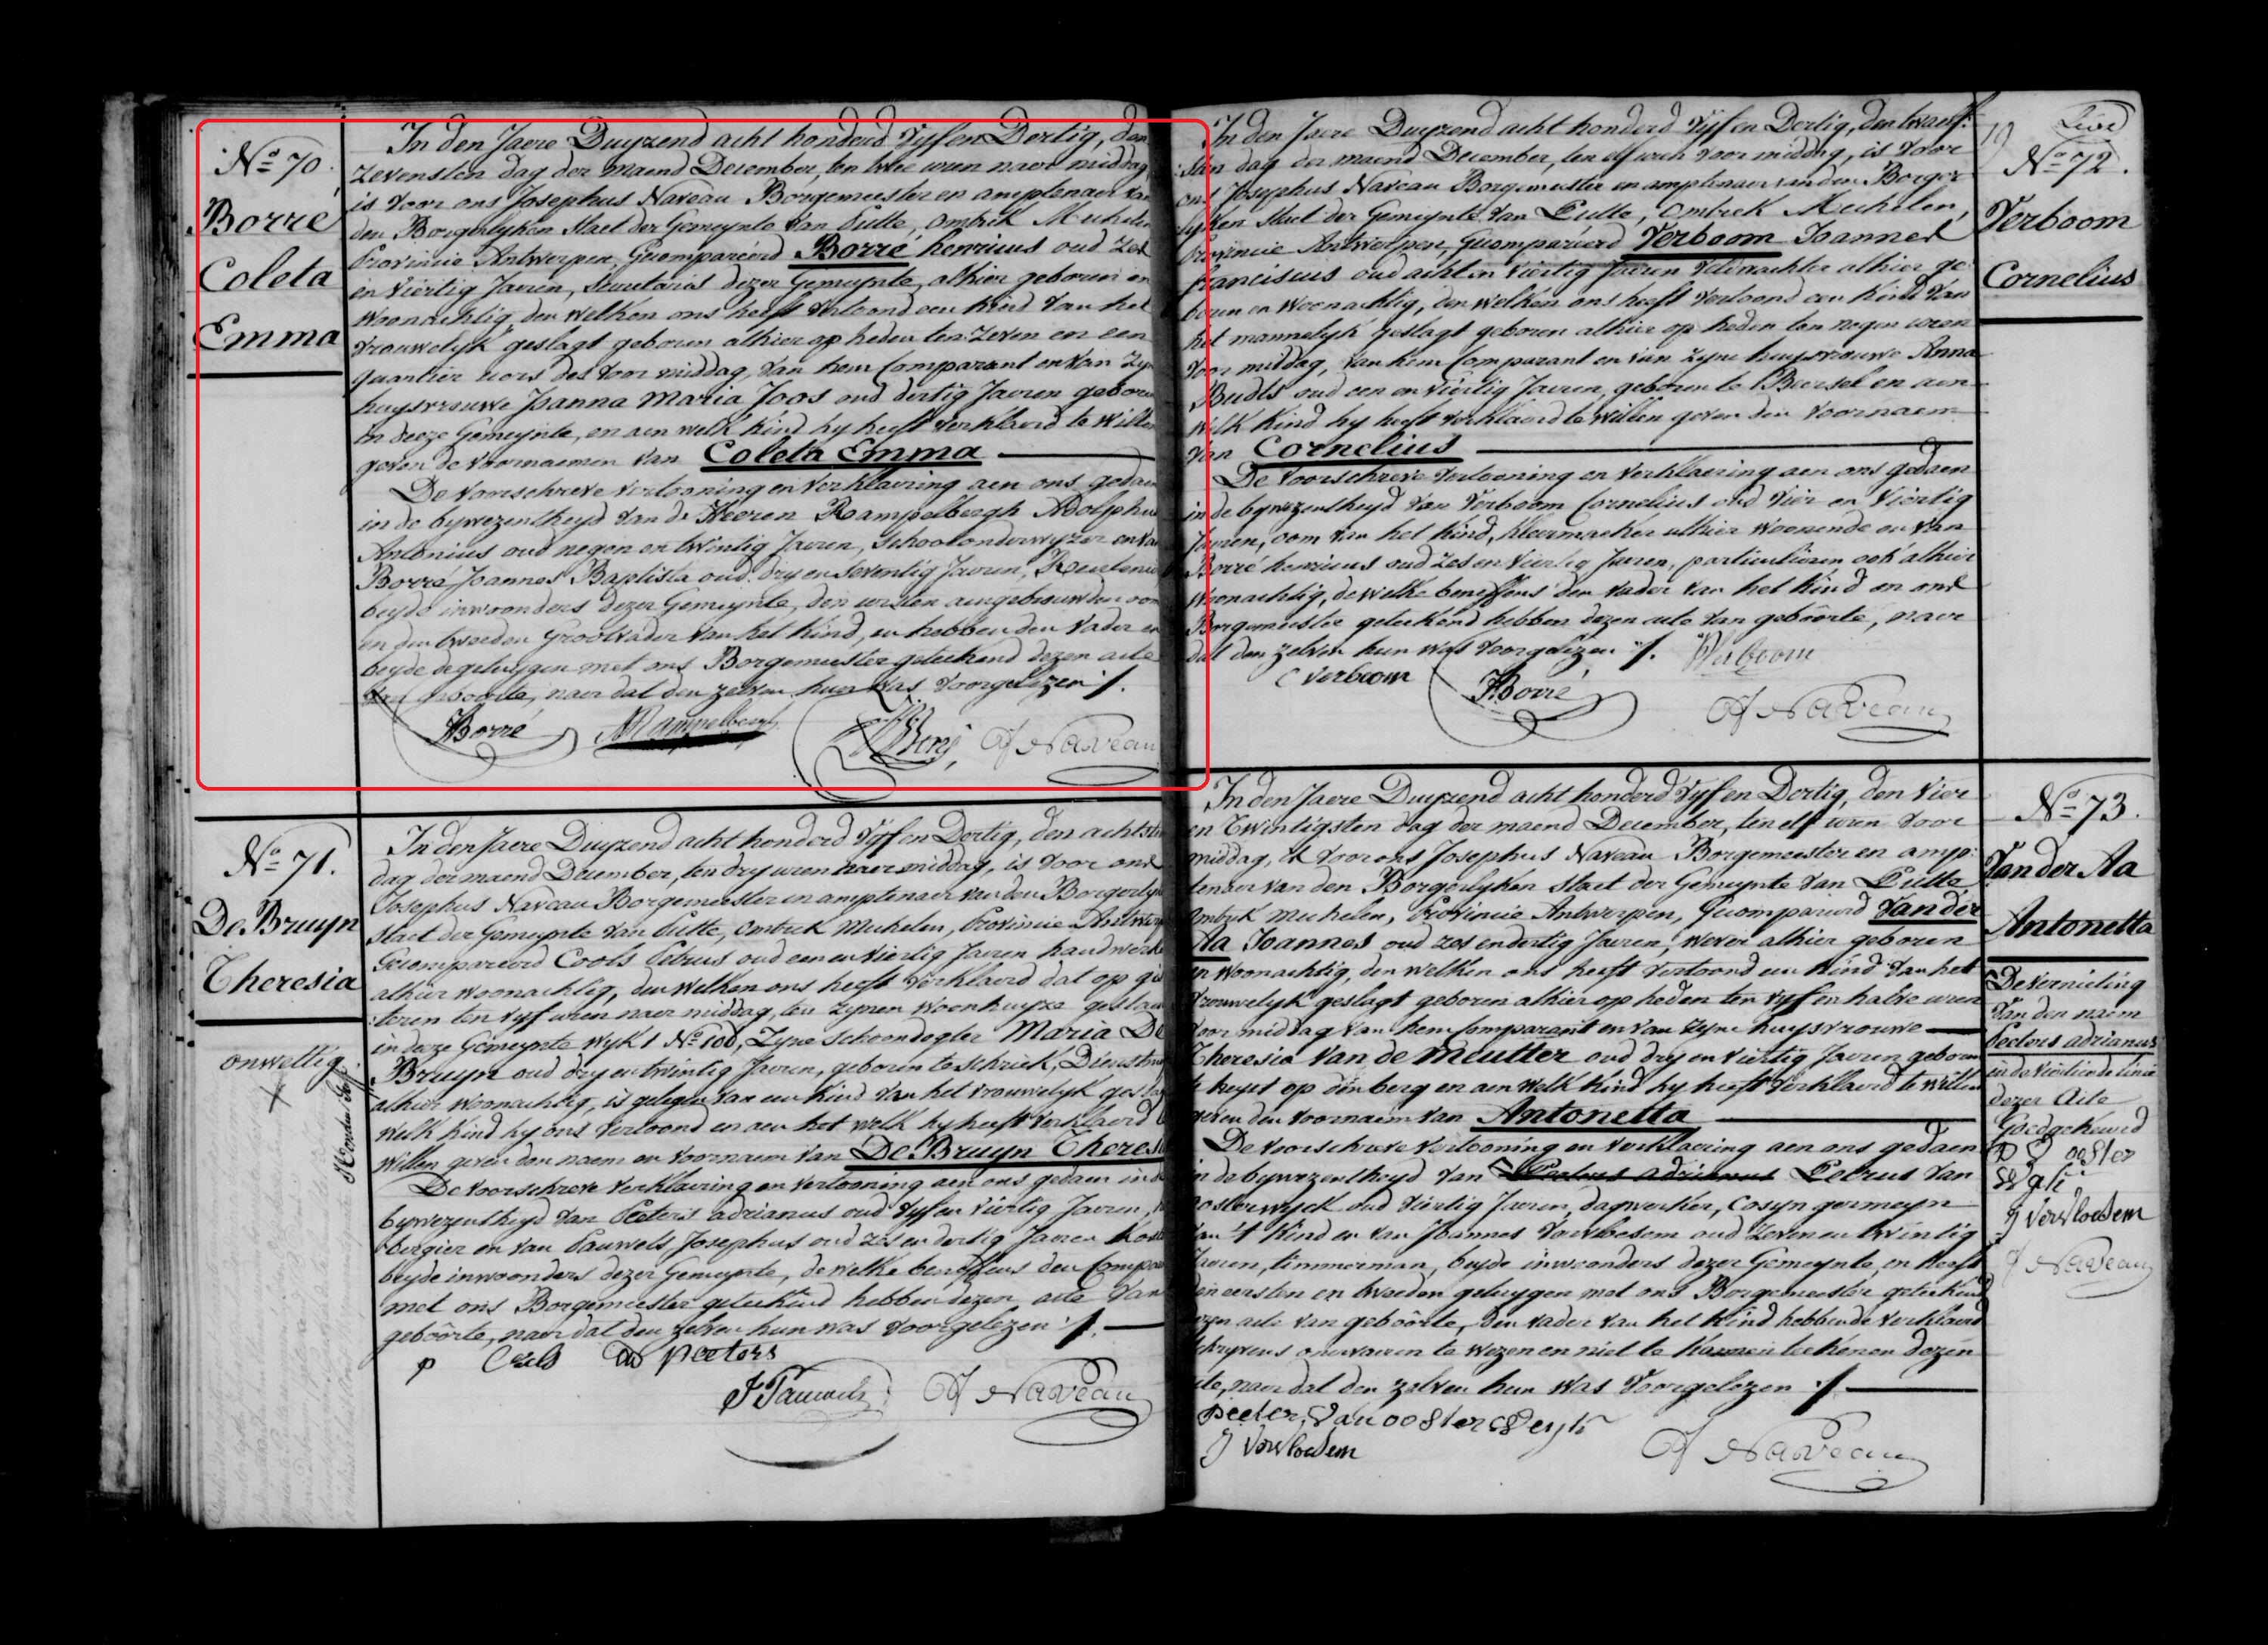 Nº 70.
Borré
Coleta
Emma
In den Jaere Duyzend acht honderd Vyf en Dertig, den
zevensten dag der maend December, ten twee uren naer middag,
is voor ons Josephus Naveau Borgemeester en amptenaer van
den Borgerlyken staet der Gemeynte van Putte, Omtrek Mechelen
Provincie Antwerpen, Gecompareerd Borré henricus oud zes
en viertig Jaeren, Secretaris dezer Gemeynte, alhier geboren en
woonachtig, den welken ons heeft vertoond een kind van het
vrouwelyk geslagt geboren alhier op heden ten zeven en een
quartier uers des voor middag, van hem Comparant en van zyn
huysvrouwe Joanna Maria Joos oud dertig Jaeren geboren
in deeze Gemeynte, en aen welk kind hy heeft verklaerd te willen
geven de voornaemen van Coleta Emma
De voorschreve vertooning en verklaering aen ons gedaen
in de bywezentheyd van de Heeren Rampelbergh Adolphus
Antonius oud negen en twintig Jaeren, schoolonderwyzer en van
Borré Joannes Baptista oud dry en seventig Jaeren, Rentenier
beyde inwoonders dezer Gemeynte, den eersten aengetrouwden oom
en den tweeden Grootvader van het kind, en hebben den vader en
beyde de getuygen met ons Borgemeester geteekend dezen acte
van geboorte, naer dat den zelven hun was voorgelezen ./.
HBorré
ARampelbergh
JBBorré
J Naveau
Nº 71.
De Bruyn
Theresia
onwettig
X
In den Jaere Duyzend acht honderd Vyf en Dertig, den achtsten
dag der maend December, ten dry uren naer middag, is voor ons
Josephus Naveau Borgemeester en amptenaer van den Borgerlyken
staet der Gemeynte van Putte, Omtrek Mechelen, Provincie Antwerpen
Gecompareerd Cools Petrus oud een en viertig Jaeren handwerker
alhier woonachtig, den welken ons heeft verklaerd dat op gis
:teren ten vyf uren naer middag, ten zynen woonhuyze gestaen
in deeze Gemeynte wyk 1 Nº 100, zyne schoondogter Maria De
Bruyn oud dry en twintig Jaeren, geboren te Schriek, Dienstmeyd
alhier woonachtig, is gelegen van een kind van het vrouwelyk geslagt
welk kind hy ons vertoond en aen het welk hy heeft verklaerd te
willen geven den naem en voornaem van De Bruyn Theresia
De voorschreve verklaering en vertooning aen ons gedaen in de
bywezentheyd van Peeters adrianus oud vyf en viertig Jaeren,
en van Pauwels Josephus oud zes en dertig Jaeren
beyde inwoonders dezer Gemeynte, de welke beneffens den Comparant
met ons Borgemeester geteekend hebben dezen acte van
geboôrte, naer dat den zelven hun was voorgelezen ./.
p Cools
ad peeters
J Pauwels
J Naveau
In den Jaere Duyzend acht honderd Vyf en Dertig, den twaelf:
:sten dag der maend December, ten elf uren voor middag, is voor
ons Josephus Naveau Borgemeester en amptenaer van den Borger
lyken staet der Gemeynte van Putte, Omtrek Mechelen,
Provincie Antwerpen, Gecompareerd Verboom Joannes
franciscus oud acht en viertig Jaeren veldwachter alhier ge:
boren en woonachtig, den welken ons heeft vertoond een kind van
het mannelyk geslagt geboren alhier op heden ten negen uren
voor middag, van hem Comparant en van zyne huysvrouwe Anna
Budts oud een en viertig Jaeren, geboren te Beersel en aen
welk kind hy heeft verklaerd te willen geven den voornaem
van Cornelius
De voorschreve vertooning en verklaering aen ons gedaen
in de bywezentheyd van Verboom Cornelius oud vier en viertig
Jaeren, oom van het kind, kleermaeker alhier woonende en van
Borré henricus oud zes en viertig Jaeren, particulieren ook alhier
woonachtig, de welke beneffens den vader van het kind en ons
Borgemeester geteekend hebben dezen acte van geboôrte, naer
dat den zelven hun was voorgelezen ./.
Verboom
C verboom
HBorré
J Naveau
Nº 72.
Verboom
Cornelius
In den Jaere Duyzend acht honderd Vyf en Dertig, den vier
en Twintigsten dag der maend December, ten elf uren voor
middag, is voor ons Josephus Naveau Borgemeester en amp:
tenaer van den Borgerlyken staet der Gemeynte van Putte,
Omtrek Mechelen, Provincie Antwerpen, Gecompareerd Van der
Aa Joannes oud zes en dertig Jaeren, wever alhier geboren
en woonachtig, den welken ons heeft vertoond een kind van het
vrouwelyk geslagt geboren alhier op heden ten vyf en halve uren
voor middag van hem Comparant en van zyne huysvrouwe
Theresia Van de Meutter oud dry en viertig Jaeren geboren
te heyst op den berg en aen welk kind hy heeft verklaerd te willen
geven den voornaem van Antonetta
De voorschreve vertooning en verklaering aen ons gedaen
in de bywezentheyd van Peeters adrianus Petrus Van
oosterwyck oud viertig Jaeren, dagwerker, Cosyn germeyn
van 't kind en van Joannes Vervloesem oud zeven en twintig
Jaeren, timmerman, beyde inwoonders dezer Gemeynte, en heeft
den eersten en tweeden getuygen met ons Borgemeester geteekend
dezen acte van geboôrte, den vader van het kind hebbende verklaerd
schryvens onervaeren te wezen en niet te konnen teekenen dezen
acte, naer dat den zelven hun was voorgelezen ./.
peeter van oosterweyk
J Vervloesem
J Naveau
Nº 73.
Van der Aa
Antonetta
De vernieting
van den naem
Peeters adrianus
in de viertiende linie
dezer Acte
Goedgekeurd
J Vervloesem
J Naveau